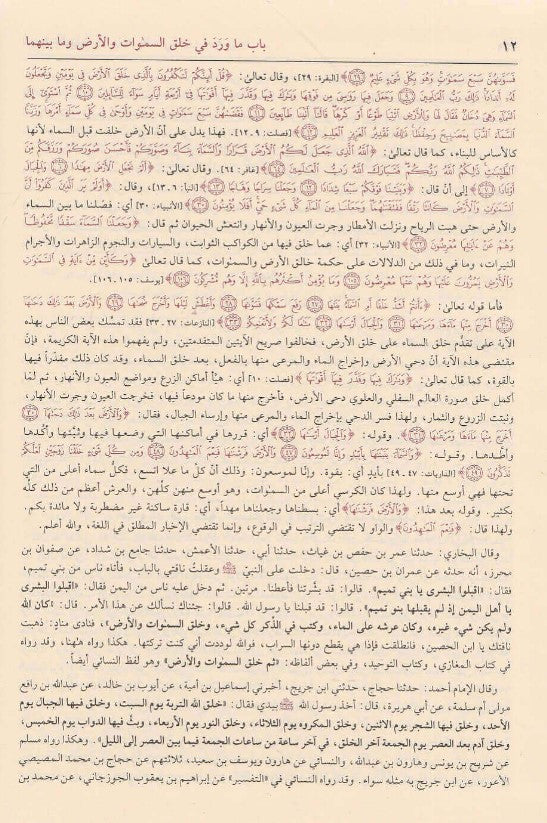 ١٢ باب ما وَرَدَ في خلق السمٰوات والأرض وما بينهما
فَسَوَّىٰهُنَّ سَبْعَ سَمَٰوَٰتٍ وَهُوَ بِكُلِّ شَيْءٍ عَلِيمٌ ﴿٢٩﴾ [البقرة: ٢٩]، وقال تعالىٰ: ﴿قُلْ أَئِنَّكُمْ لَتَكْفُرُونَ بِالَّذِي خَلَقَ الْأَرْضَ فِي يَوْمَيْنِ وَتَجْعَلُونَ
لَهُ أَندَادًا ذَٰلِكَ رَبُّ الْعَٰلَمِينَ ﴿٩﴾ وَجَعَلَ فِيهَا رَوَٰسِيَ مِن فَوْقِهَا وَبَٰرَكَ فِيهَا وَقَدَّرَ فِيهَا أَقْوَٰتَهَا فِي أَرْبَعَةِ أَيَّامٍ سَوَاءً لِّلسَّائِلِينَ ﴿١٠﴾ ثُمَّ اسْتَوَىٰ إِلَى
السَّمَاءِ وَهِيَ دُخَانٌ فَقَالَ لَهَا وَلِلْأَرْضِ ائْتِيَا طَوْعًا أَوْ كَرْهًا قَالَتَا أَتَيْنَا طَائِعِينَ ﴿١١﴾ فَقَضَىٰهُنَّ سَبْعَ سَمَٰوَاتٍ فِي يَوْمَيْنِ وَأَوْحَىٰ فِي كُلِّ سَمَاءٍ أَمْرَهَا وَزَيَّنَّا
السَّمَاءَ الدُّنْيَا بِمَصَٰبِيحَ وَحِفْظًا ذَٰلِكَ تَقْدِيرُ الْعَزِيزِ الْعَلِيمِ ﴿١٢﴾ [فصلت: ٩ـ١٢]. فهذا يدل علىٰ أنَّ الأرض خلقت قبل السماء لأنها
كالأساس للبناء، كما قال تعالىٰ: ﴿اللَّهُ الَّذِي جَعَلَ لَكُمُ الْأَرْضَ قَرَارًا وَالسَّمَاءَ بِنَاءً وَصَوَّرَكُمْ فَأَحْسَنَ صُوَرَكُمْ وَرَزَقَكُم مِّنَ
الطَّيِّبَٰتِ ذَٰلِكُمُ اللَّهُ رَبُّكُمْ فَتَبَارَكَ اللَّهُ رَبُّ الْعَٰلَمِينَ ﴿٦٤﴾ [غافر: ٦٤]. وقال تعالىٰ: ﴿أَلَمْ نَجْعَلِ الْأَرْضَ مِهَٰدًا ﴿٦﴾ وَالْجِبَالَ
أَوْتَادًا ﴿٧﴾ إلى أن قال: ﴿وَبَنَيْنَا فَوْقَكُمْ سَبْعًا شِدَادًا ﴿١٢﴾ وَجَعَلْنَا سِرَاجًا وَهَّاجًا ﴿١٣﴾ [النبأ ٦ـ١٣]، وقال: ﴿أَوَلَمْ يَرَ الَّذِينَ كَفَرُوا أَنَّ
السَّمَٰوَٰتِ وَالْأَرْضَ كَانَتَا رَتْقًا فَفَتَقْنَٰهُمَا وَجَعَلْنَا مِنَ الْمَاءِ كُلَّ شَيْءٍ حَيٍّ أَفَلَا يُؤْمِنُونَ ﴿٣٠﴾ [الأنبياء: ٣٠] أي: فصَلْنا ما بين السماء
والأرض حتى هبت الرياح ونزلت الأمطار وجرت العيون والأنهار وانتعش الحيوان ثم قال: ﴿وَجَعَلْنَا السَّمَاءَ سَقْفًا مَّحْفُوظًا
وَهُمْ عَنْ ءَايَٰتِهَا مُعْرِضُونَ ﴿٣٢﴾ [الأنبياء: ٣٢] أي: عما خلق فيها من الكواكب الثوابت، والسيارات والنجوم الزاهرات والأجرام
النيرات، وما في ذلك من الدلالات على حكمة خلق الأرض والسمٰوات، كما قال تعالىٰ ﴿وَكَأَيِّن مِّنْ ءَايَةٍ فِي السَّمَٰوَٰتِ
وَالْأَرْضِ يَمُرُّونَ عَلَيْهَا وَهُمْ عَنْهَا مُعْرِضُونَ ﴿١٠٥﴾ وَمَا يُؤْمِنُ أَكْثَرُهُم بِاللَّهِ إِلَّا وَهُم مُّشْرِكُونَ ﴿١٠٦﴾ [يوسف: ١٠٥، ١٠٦].
فأما قوله تعالىٰ: ﴿ءَأَنتُمْ أَشَدُّ خَلْقًا أَمِ السَّمَاءُ بَنَىٰهَا ﴿٢٧﴾ رَفَعَ سَمْكَهَا فَسَوَّىٰهَا ﴿٢٨﴾ وَأَغْطَشَ لَيْلَهَا وَأَخْرَجَ ضُحَىٰهَا ﴿٢٩﴾ وَالْأَرْضَ بَعْدَ ذَٰلِكَ دَحَىٰهَا
﴿٣٠﴾ أَخْرَجَ مِنْهَا مَاءَهَا وَمَرْعَىٰهَا ﴿٣١﴾ وَالْجِبَالَ أَرْسَىٰهَا ﴿٣٢﴾ مَتَٰعًا لَّكُمْ وَلِأَنْعَٰمِكُمْ ﴿٣٣﴾ [النازعات: ٢٧ ـ ٣٣] فقد تمسَّك بعض الناس بهذه
الآية على تقدُّم خلق السماء على خلق الأرض، فخالفوا صريح الآيتين المتقدمتين، ولم يفهموا هذه الآية الكريمة، فإنَّ
مقتضى هذه الآية أنَّ دحي الأرض وإخراج الماء والمرعى منها بالفعل، بعد خلق السماء، وقد كان ذلك مقدَّراً فيها
بالقوة، كما قال تعالىٰ: ﴿وَبَٰرَكَ فِيهَا وَقَدَّرَ فِيهَا أَقْوَٰتَهَا﴾ [فصلت: ١٠] أي: هيَّأ أماكن الزرع ومواضع العيون والأنهار، ثم لمّا
أكمل خلق صورة العالم السفلي والعلوي دحى الأرض، فأخرج منها ما كان مودعاً فيها، فخرجت العيون وجرت الأنهار،
ونبتت الزروع والثمار، ولهذا فسر الدحي بإخراج الماء والمرعى منها وإرساء الجبال، فقال: ﴿وَالْأَرْضَ بَعْدَ ذَٰلِكَ دَحَىٰهَا ﴿٣٠﴾
أَخْرَجَ مِنْهَا مَاءَهَا وَمَرْعَىٰهَا ﴿٣١﴾. وقوله: ﴿وَالْجِبَالَ أَرْسَىٰهَا ﴿٣٢﴾ أي: قررها في أماكنها التي وضعها فيها وثبَّتها وأكَّدها
وأطَّدها. وقوله: ﴿وَالسَّمَاءَ بَنَيْنَٰهَا بِأَيْيْدٍ وَإِنَّا لَمُوسِعُونَ ﴿٤٧﴾ وَالْأَرْضَ فَرَشْنَٰهَا فَنِعْمَ الْمَٰهِدُونَ ﴿٤٨﴾ وَمِن كُلِّ شَيْءٍ خَلَقْنَا زَوْجَيْنِ لَعَلَّكُمْ
تَذَكَّرُونَ ﴿٤٩﴾ [الذاريات: ٤٧ ـ ٤٩] بأيدٍ أي: بقوة. وإنا لموسعون: وذلك أنَّ كلَّ ما علا اتسع، فكلُّ سماء أعلى من التي
تحتها فهي أوسع منها. ولهذا كان الكرسي أعلى من السمٰوات، وهو أوسع منهن كلِّهن، والعرش أعظم من ذلك كلِّه
بكثير. وقوله بعد هذا: ﴿وَالْأَرْضَ فَرَشْنَٰهَا﴾ أي: بسطناها وجعلناها مهداً، أي: قارة ساكنة غير مضطربة ولا مائدة بكم.
ولهذا قال: ﴿فَنِعْمَ الْمَٰهِدُونَ﴾ والواو لا تقتضي الترتيب في الوقوع، وإنما تقتضي الإخبار المطلق في اللغة، والله أعلم.
وقال البخاري: حدثنا عمر بن حفص بن غياث، حدثنا أبي، حدثنا الأعمش، حدثنا جامع بن شداد، عن صفوان بن
محرز، أنه حدثه عن عمران بن حصين، قال: دخلت على النبيِّ ﷺ وعقلتُ ناقتي بالباب، فأتاه ناس من بني تميم،
فقال: «اقبلوا البشرى يا بني تميم». قالوا: قد بشَّرتنا فأعطنا. مرتين. ثم دخل عليه ناس من اليمن فقال: «اقبلوا البشرى
يا أهل اليمن إذ لم يقبلها بنو تميم». قالوا: قد قبلنا يا رسول الله. قالوا: جئناك نسألك عن هذا الأمر. قال: «كان الله
ولم يكن شيء غيره، وكان عرشه على الماء، وكتب في الذِّكر كل شيء، وخلق السموات والأرض»، فنادى منادٍ: ذهبت
ناقتك يا ابن الحصين، فانطلقت فإذا هي يقطع دونها السراب، فوالله لوددت أني كنت تركتها. هكذا رواه هٰهنا، وقد رواه
في كتاب المغازي، وكتاب التوحيد، وفي بعض ألفاظه: «ثم خلق السموات والأرض» وهو لفظ النسائي أيضاً.
وقال الإمام أحمد: حدثنا حجاج، حدثني ابن جريج، أخبرني إسماعيل بن أمية، عن أيوب بن خالد، عن عبدالله بن رافع
مولى أم سلمة، عن أبي هريرة، قال: أخذ رسول الله ﷺ بيدي فقال: «خلق الله التربة يوم السبت، وخلق فيها الجبال يوم
الأحد، وخلق فيها الشجر يوم الاثنين، وخلق المكروه يوم الثلاثاء، وخلق النور يوم الأربعاء، وبثَّ فيها الدواب يوم الخميس،
وخلق آدم بعد العصر يوم الجمعة آخر الخلق، في آخر ساعة من ساعات الجمعة فيما بين العصر إلى الليل». وهكذا رواه مسلم
عن سُريج بن يونس وهارون بن عبدالله، والنسائي عن هارون ويوسف بن سعيد، ثلاثتهم عن حجاج بن محمد المصيصي
الأعور، عن ابن جريج به مثله سواء. وقد رواه النسائي في «التفسير» عن إبراهيم بن يعقوب الجوزجاني، عن محمد بن